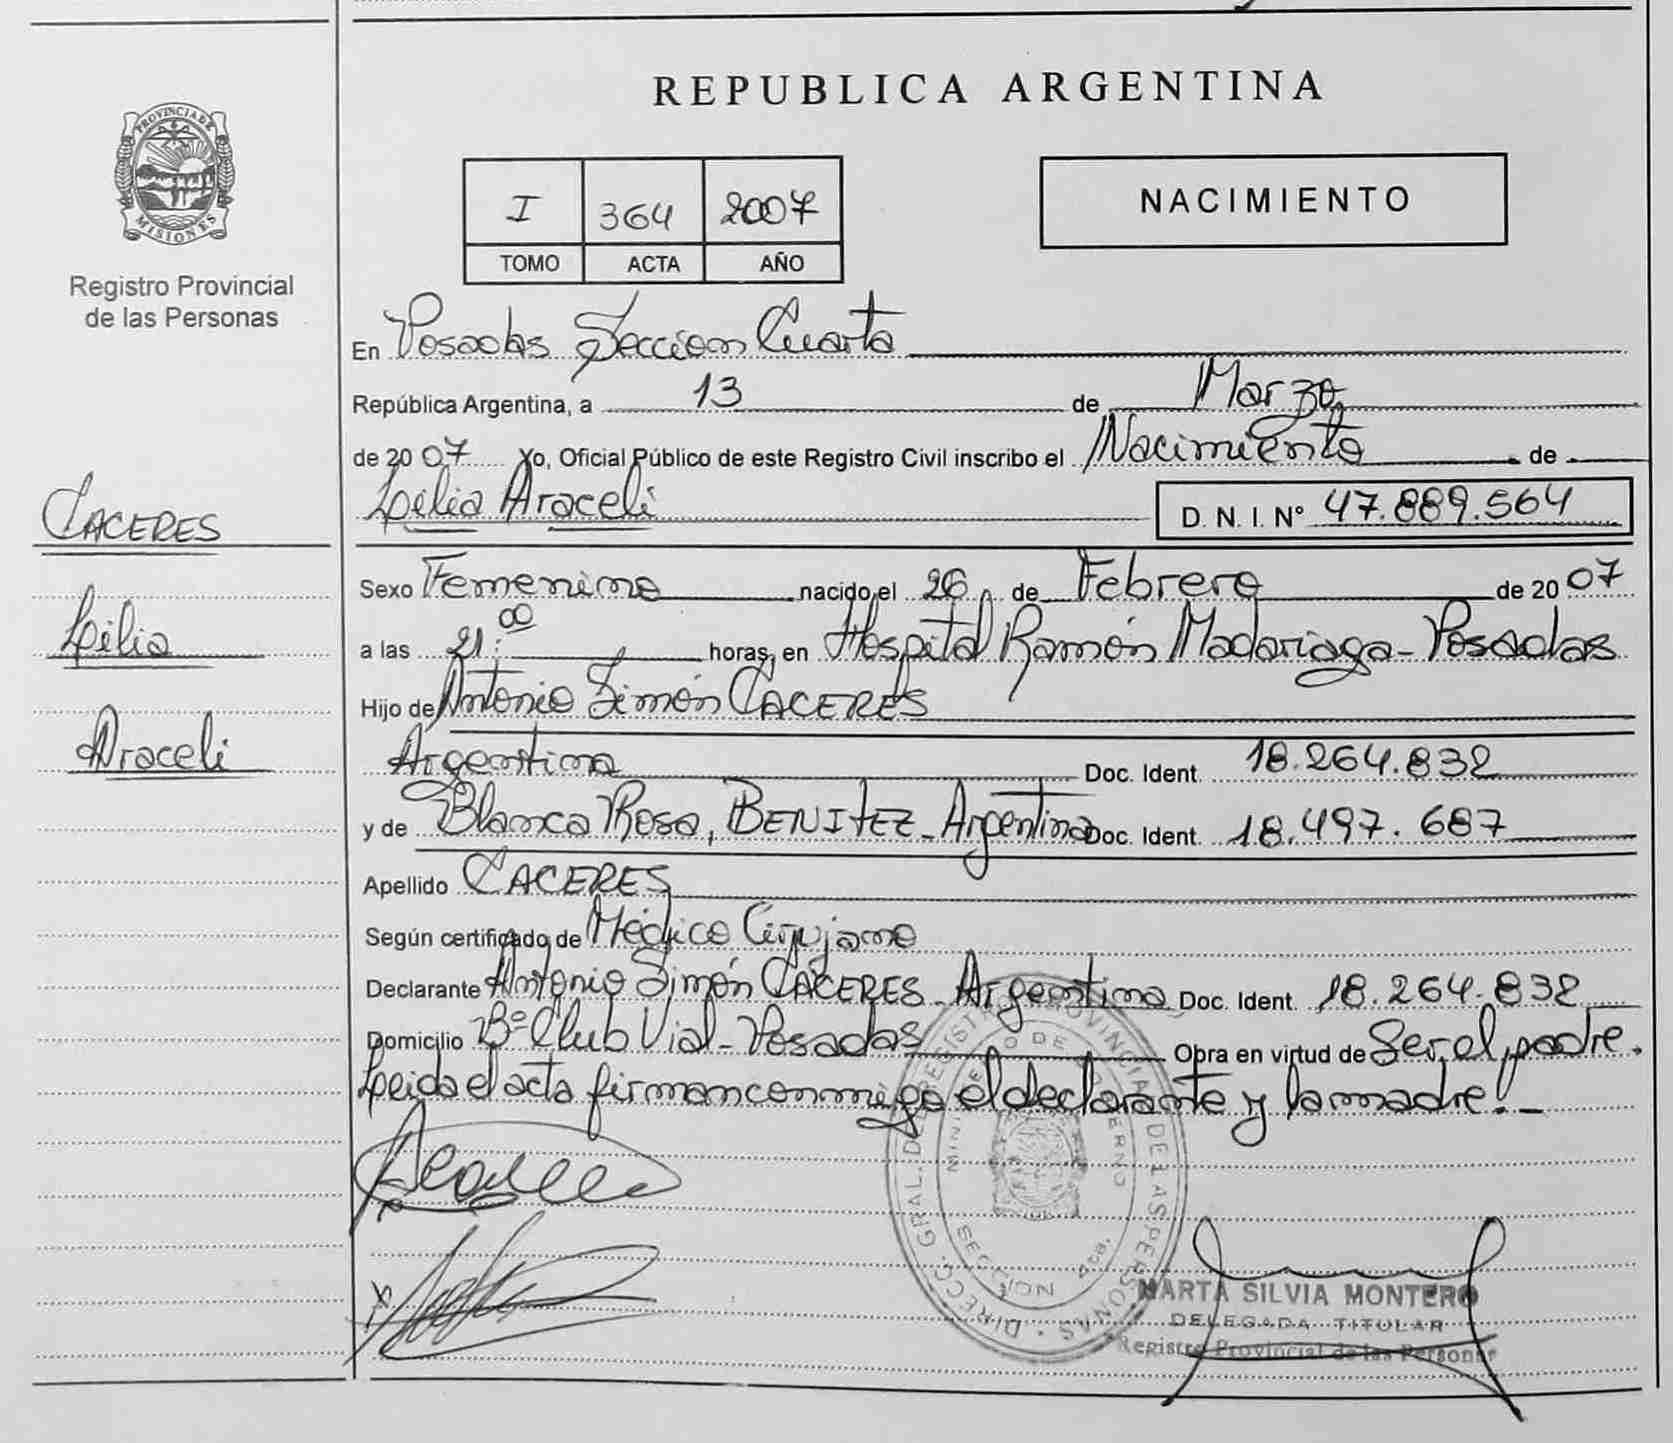 REPUBLICA ARGENTINA
PROVINCIA DE
MISIONES
Registro Provincial
de las Personas
I 364 2007
TOMO ACTA AÑO
NACIMIENTO
En Posadas Seccion Cuarta
República Argentina, a 13 de Marzo
de 2007 Yo, Oficial Público de este Registro Civil inscribo el Nacimiento de
Lilia Araceli D. N. I. N° 47.889.564
CACERES
Lilia
Araceli
Sexo Femenino nacido el 26 de Febrero de 2007
a las 21:00 horas, en Hospital Ramón Madariaga - Posadas
Hijo de Antonio Simón CACERES
Argentino Doc. Ident. 18.264.832
y de Blanca Rosa, BENITEZ - Argentina Doc. Ident. 18.497.687
Apellido CACERES
Según certificado de Médico Cirujano
Declarante Antonio Simón CACERES - Argentino Doc. Ident. 18.264.832
Domicilio B° Club Vial - Posadas Obra en virtud de Ser el padre.
Leida el acta firman conmigo el declarante y la madre! -
DIRECC. GRAL. DE REGISTRO PROVINCIAL DE LAS PERSONAS
SECCION 4ta.
MARTA SILVIA MONTERO
DELEGADA TITULAR
Registro Provincial de las Personas